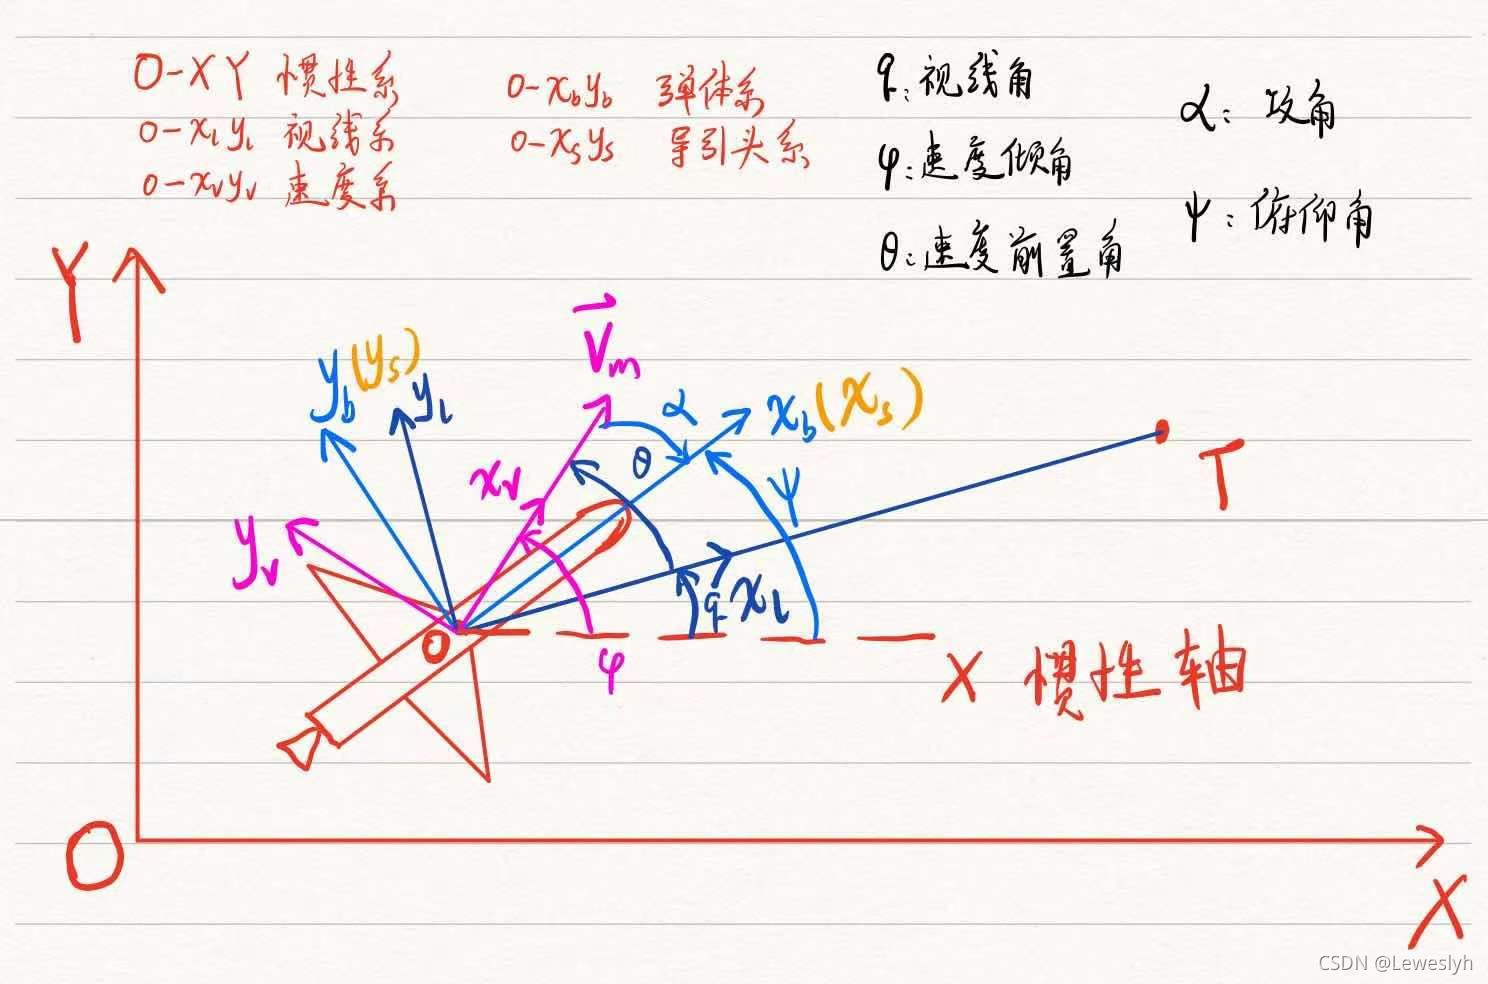 O-XY 惯性系
O-xₗyₗ 视线系
O-xᵥyᵥ 速度系
O-x_b y_b 弹体系
O-x_s y_s 导引头系
q:视线角
φ:速度倾角
θ:速度前置角
α:攻角
ψ:俯仰角
Y
V_m
y_b(y_s)
yₗ
α
x_b(x_s)
θ
T
xᵥ
ψ
yᵥ
q
xₗ
O
φ
X 惯性轴
O
X
CSDN @Leweslyh